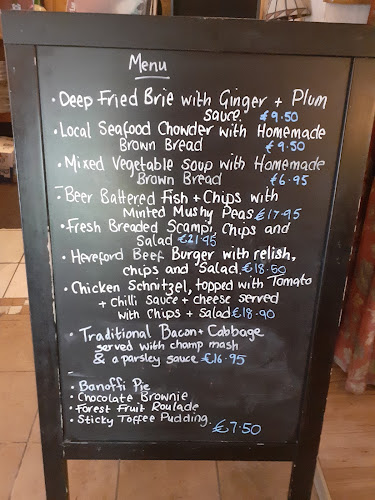 Menu
· Deep Fried Brie with Ginger + Plum
sauce. €9.50
· Local Seafood Chowder with Homemade
Brown Bread €9.50
· Mixed Vegetable soup with Homemade
Brown Bread €6.95
- Beer Battered Fish + Chips with
Minted Mushy Peas €17.95
· Fresh Breaded Scampi, Chips and
Salad €21.95
· Hereford Beef Burger with relish,
chips and Salad. €18.50
· Chicken Schnitzel, topped with Tomato
+ Chilli Sauce + cheese served
with Chips + Salad €18.90
· Traditional Bacon + Cabbage
served with champ mash
& a parsley sauce €16.95
· Banoffi Pie
· Chocolate Brownie
· Forest Fruit Roulade
· Sticky Toffee Pudding. €7.50